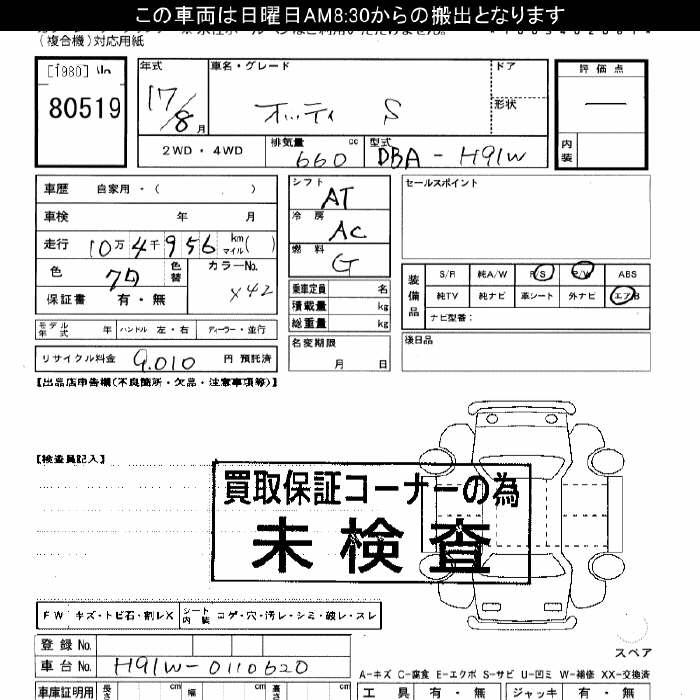 この車両は日曜日AM8:30からの搬出となります
(複合機)対応用紙
[1980]
80519
年式 17/8月
車名・グレード オッティ S
ドア
形状
評価点 —
内装
2WD・4WD
排気量 660 cc
型式 DBA-H91W
車歴 自家用・( )
車検 年 月
走行 10万4千956 km マイル( )
色 クロ 色替 カラーNo. X42
保証書 有・無
シフト AT
冷房 AC
燃料 G
乗車定員 名
積載量 kg
総重量 kg
名変期限 月 日
セールスポイント
装備品
S/R 純A/W P/S P/W ABS
純TV 純ナビ 革シート 外ナビ エアB
ナビ型番:
後日品
モデル年式 年 ハンドル 左・右 ディーラー・並行
リサイクル料金 9,010 円 預託済
【出品店申告欄(不良箇所・欠品・注意事項等)】
【検査員記入】
買取保証コーナーの為
未検査
FW キズ・トビ石・割レX シート内装 コゲ・穴・汚レ・シミ・破レ・スレ
スペア
登録No.
車台No. H91W-0110620
A-キズ C-腐食 E-エクボ S-サビ U-凹ミ W-補修 XX-交換済
車庫証明用 長さ cm 幅 cm 高さ cm
工具 有・無 ジャッキ 有・無